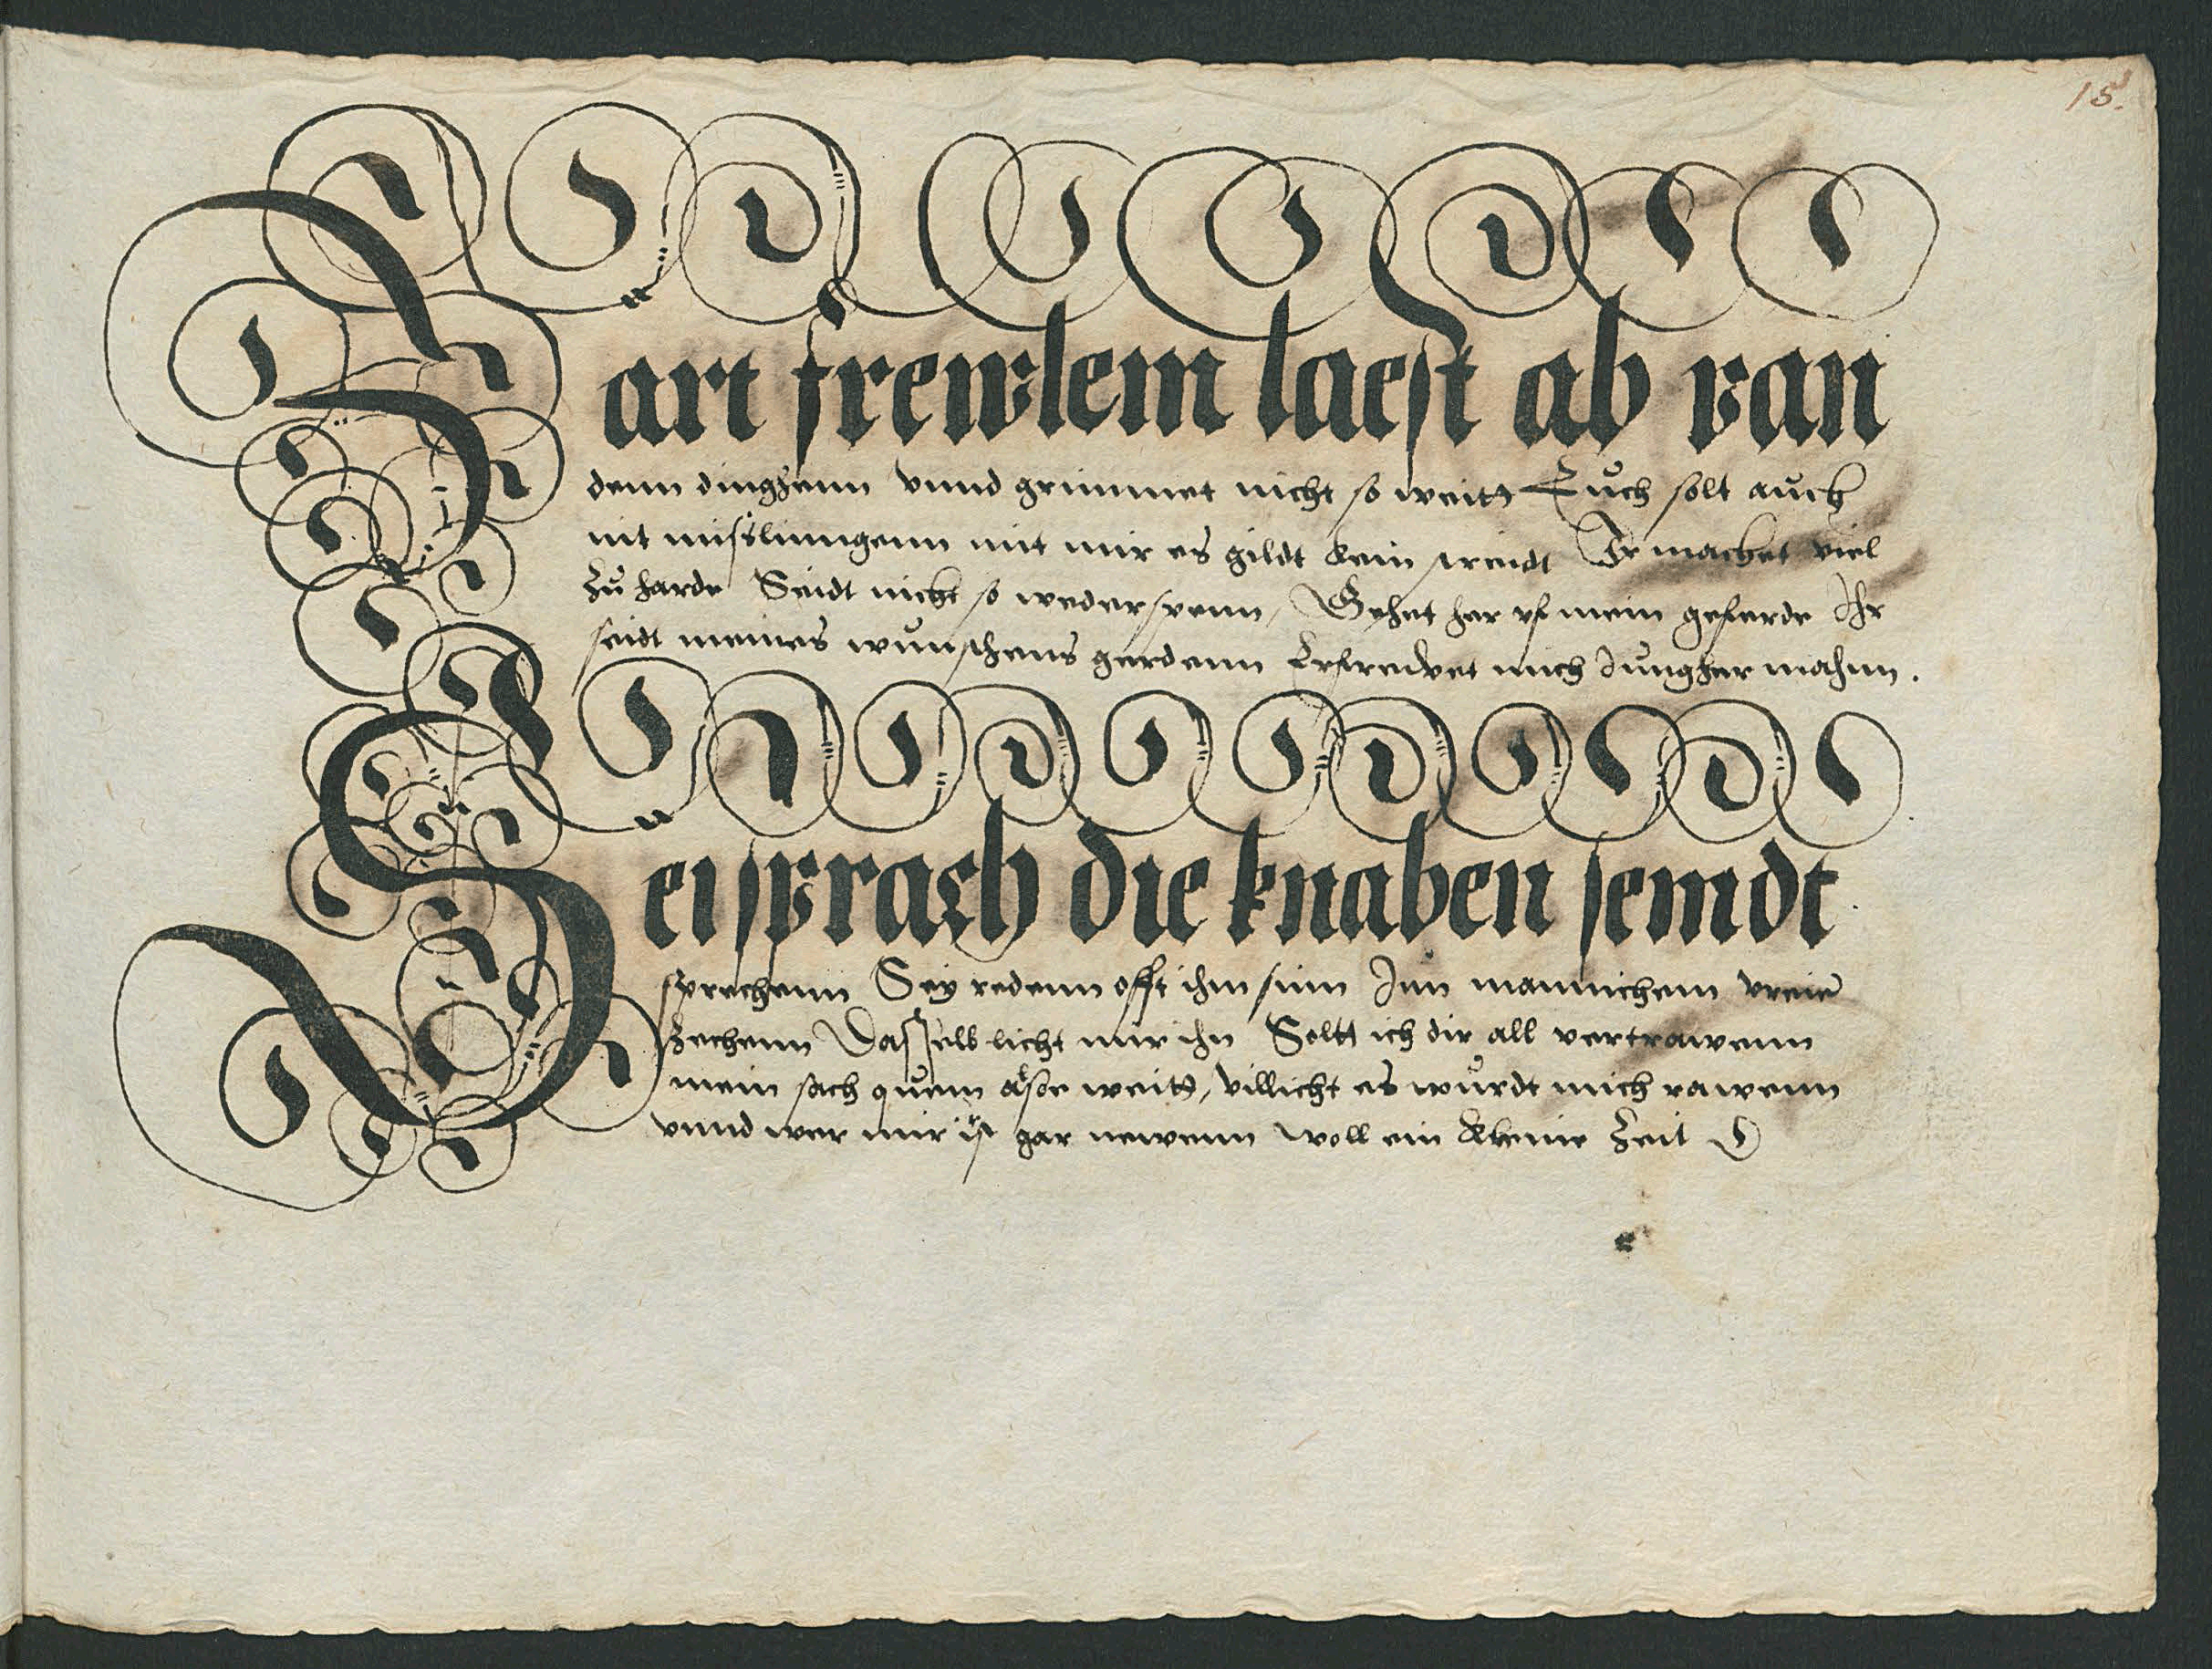 18.
Zart frewlein laest ab van
denn dinghenn vnnd grimmet nicht so weitt Euch solt auch
nit mißlinngenn mit mir es gildt kein streidt Ir machet viel
zu harde Seidt nicht so wederspenn, Gehet her vf mein geferde Ihr
seidt meines wunschens gerdenn Erfrewet mich Jungher mahnn.
Sei sprach die knaben seindt
sprechenn Sey redenn offt ihm sinn Inn mannichem
zechenn Dasselb licht mir ihn Soltt ich dir all vertrawenn
mein sach quem alsoe weitt, villicht es wurdt mich rawenn
vnnd wer mir ist gar newenn woll ein kleine Zeit